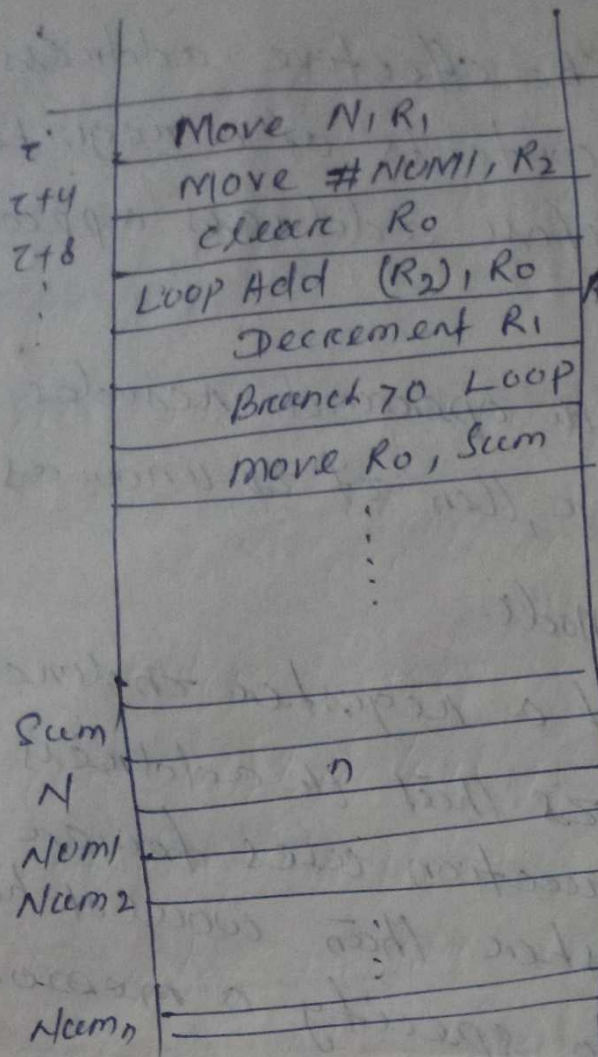 Move N, R1
τ
Move #NUM1, R2
τ+4
Clear R0
τ+8
Loop Add (R2), R0
Decrement R1
Branch >0 LOOP
move R0, Sum
Sum
N n
Num1
Num2
Numn